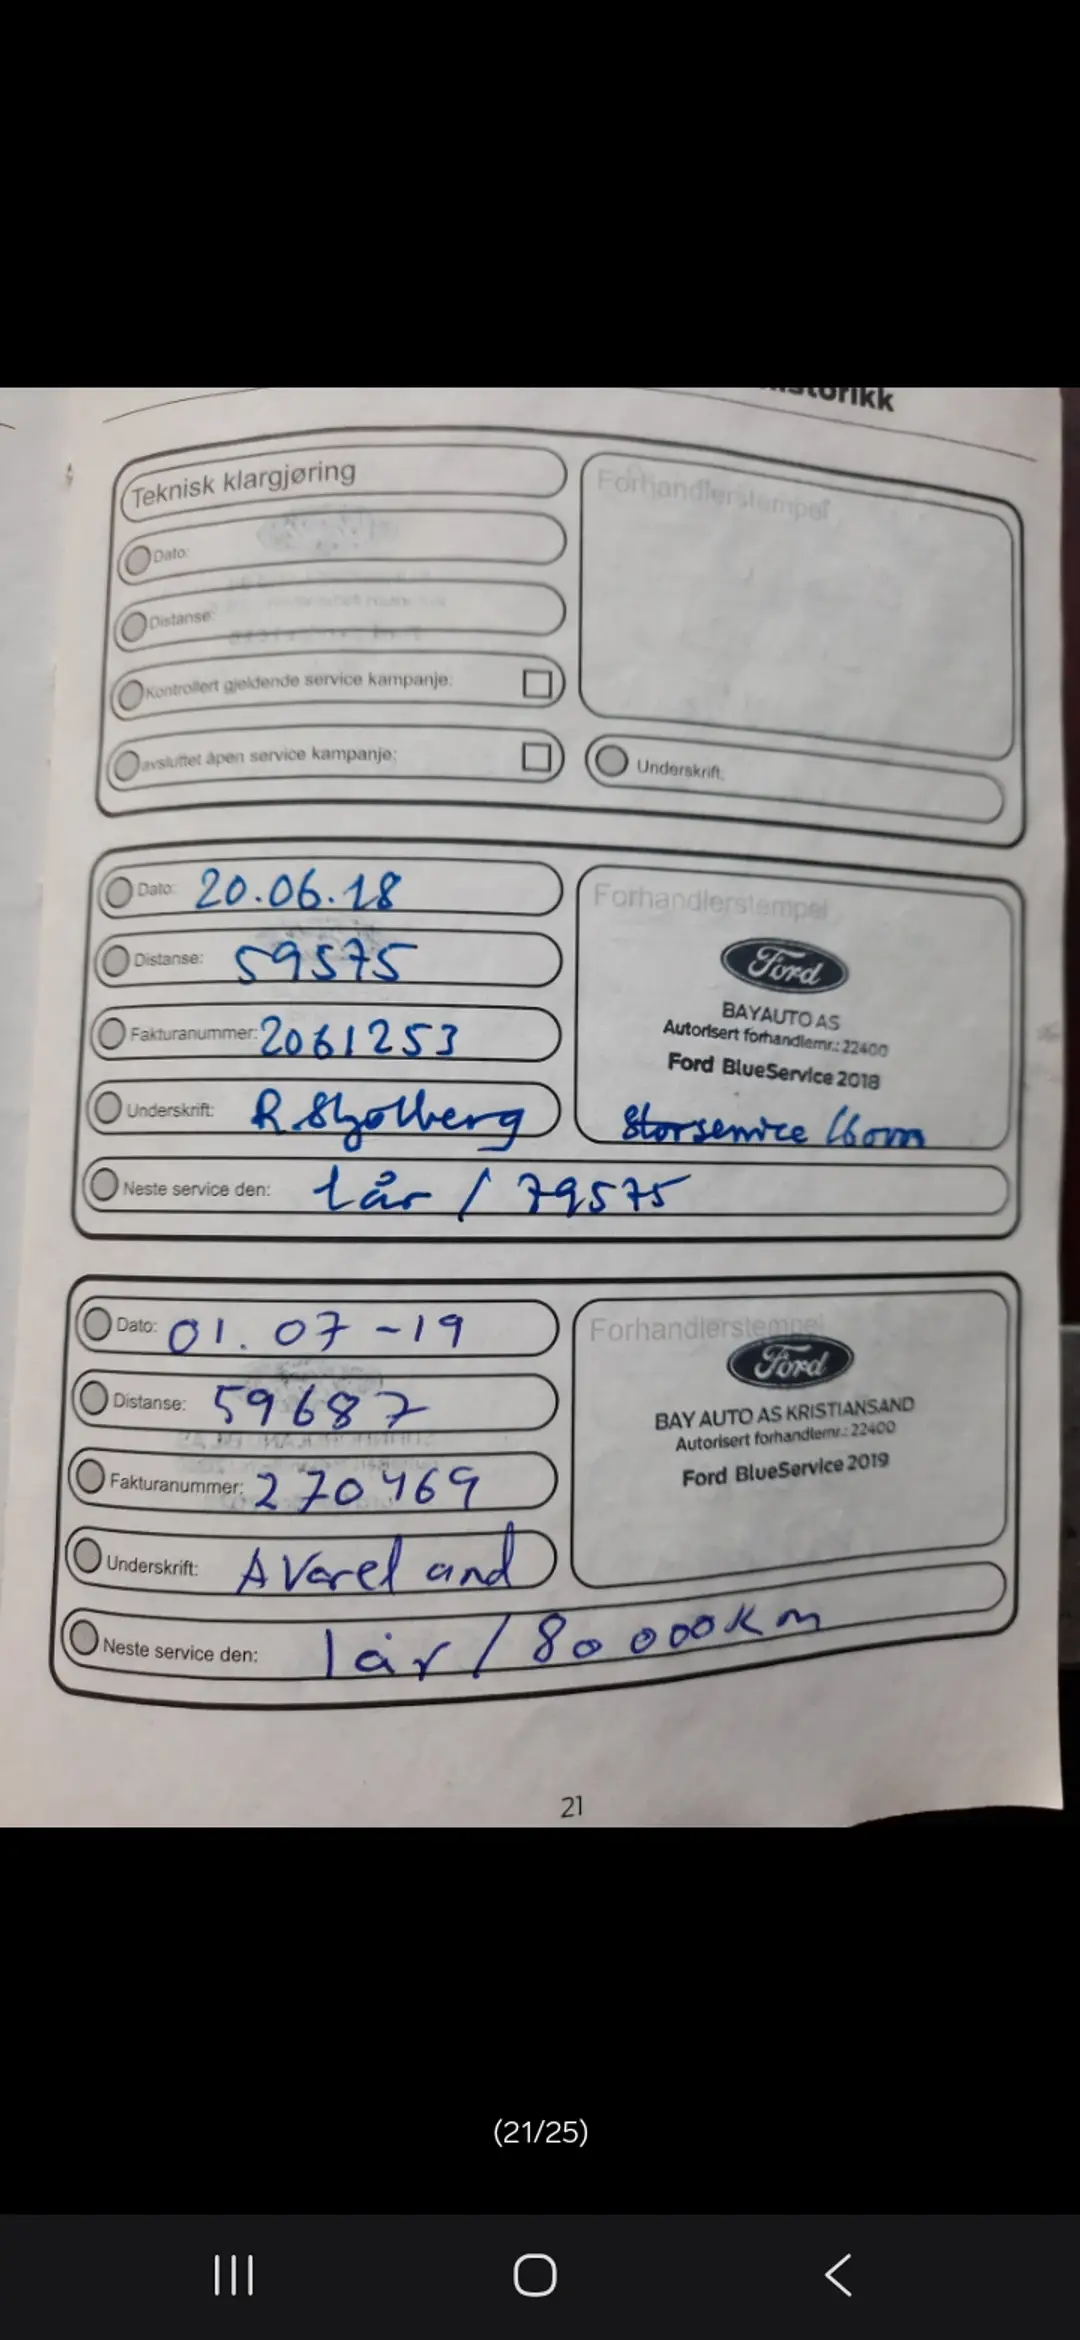 Teknisk klargjøring
Forhandlerstempel
Dato:
Distanse:
Kontrollert gjeldende service kampanje:
avsluttet åpen service kampanje:
Underskrift:
Dato: 20.06.18
Distanse: 59575
Fakturanummer: 2061253
Underskrift: R
Forhandlerstempel
Ford
BAYAUTO AS
Autorisert forhandlernr.: 22400
Ford BlueService 2018
Storservice
Neste service den: 1 år / 79575
Dato: 01.07-19
Distanse: 59687
Fakturanummer: 270469
Underskrift: A
Forhandlerstempel
Ford
BAY AUTO AS KRISTIANSAND
Autorisert forhandlernr.: 22400
Ford BlueService 2019
Neste service den: 1 år / 80 000 km
21
(21/25)